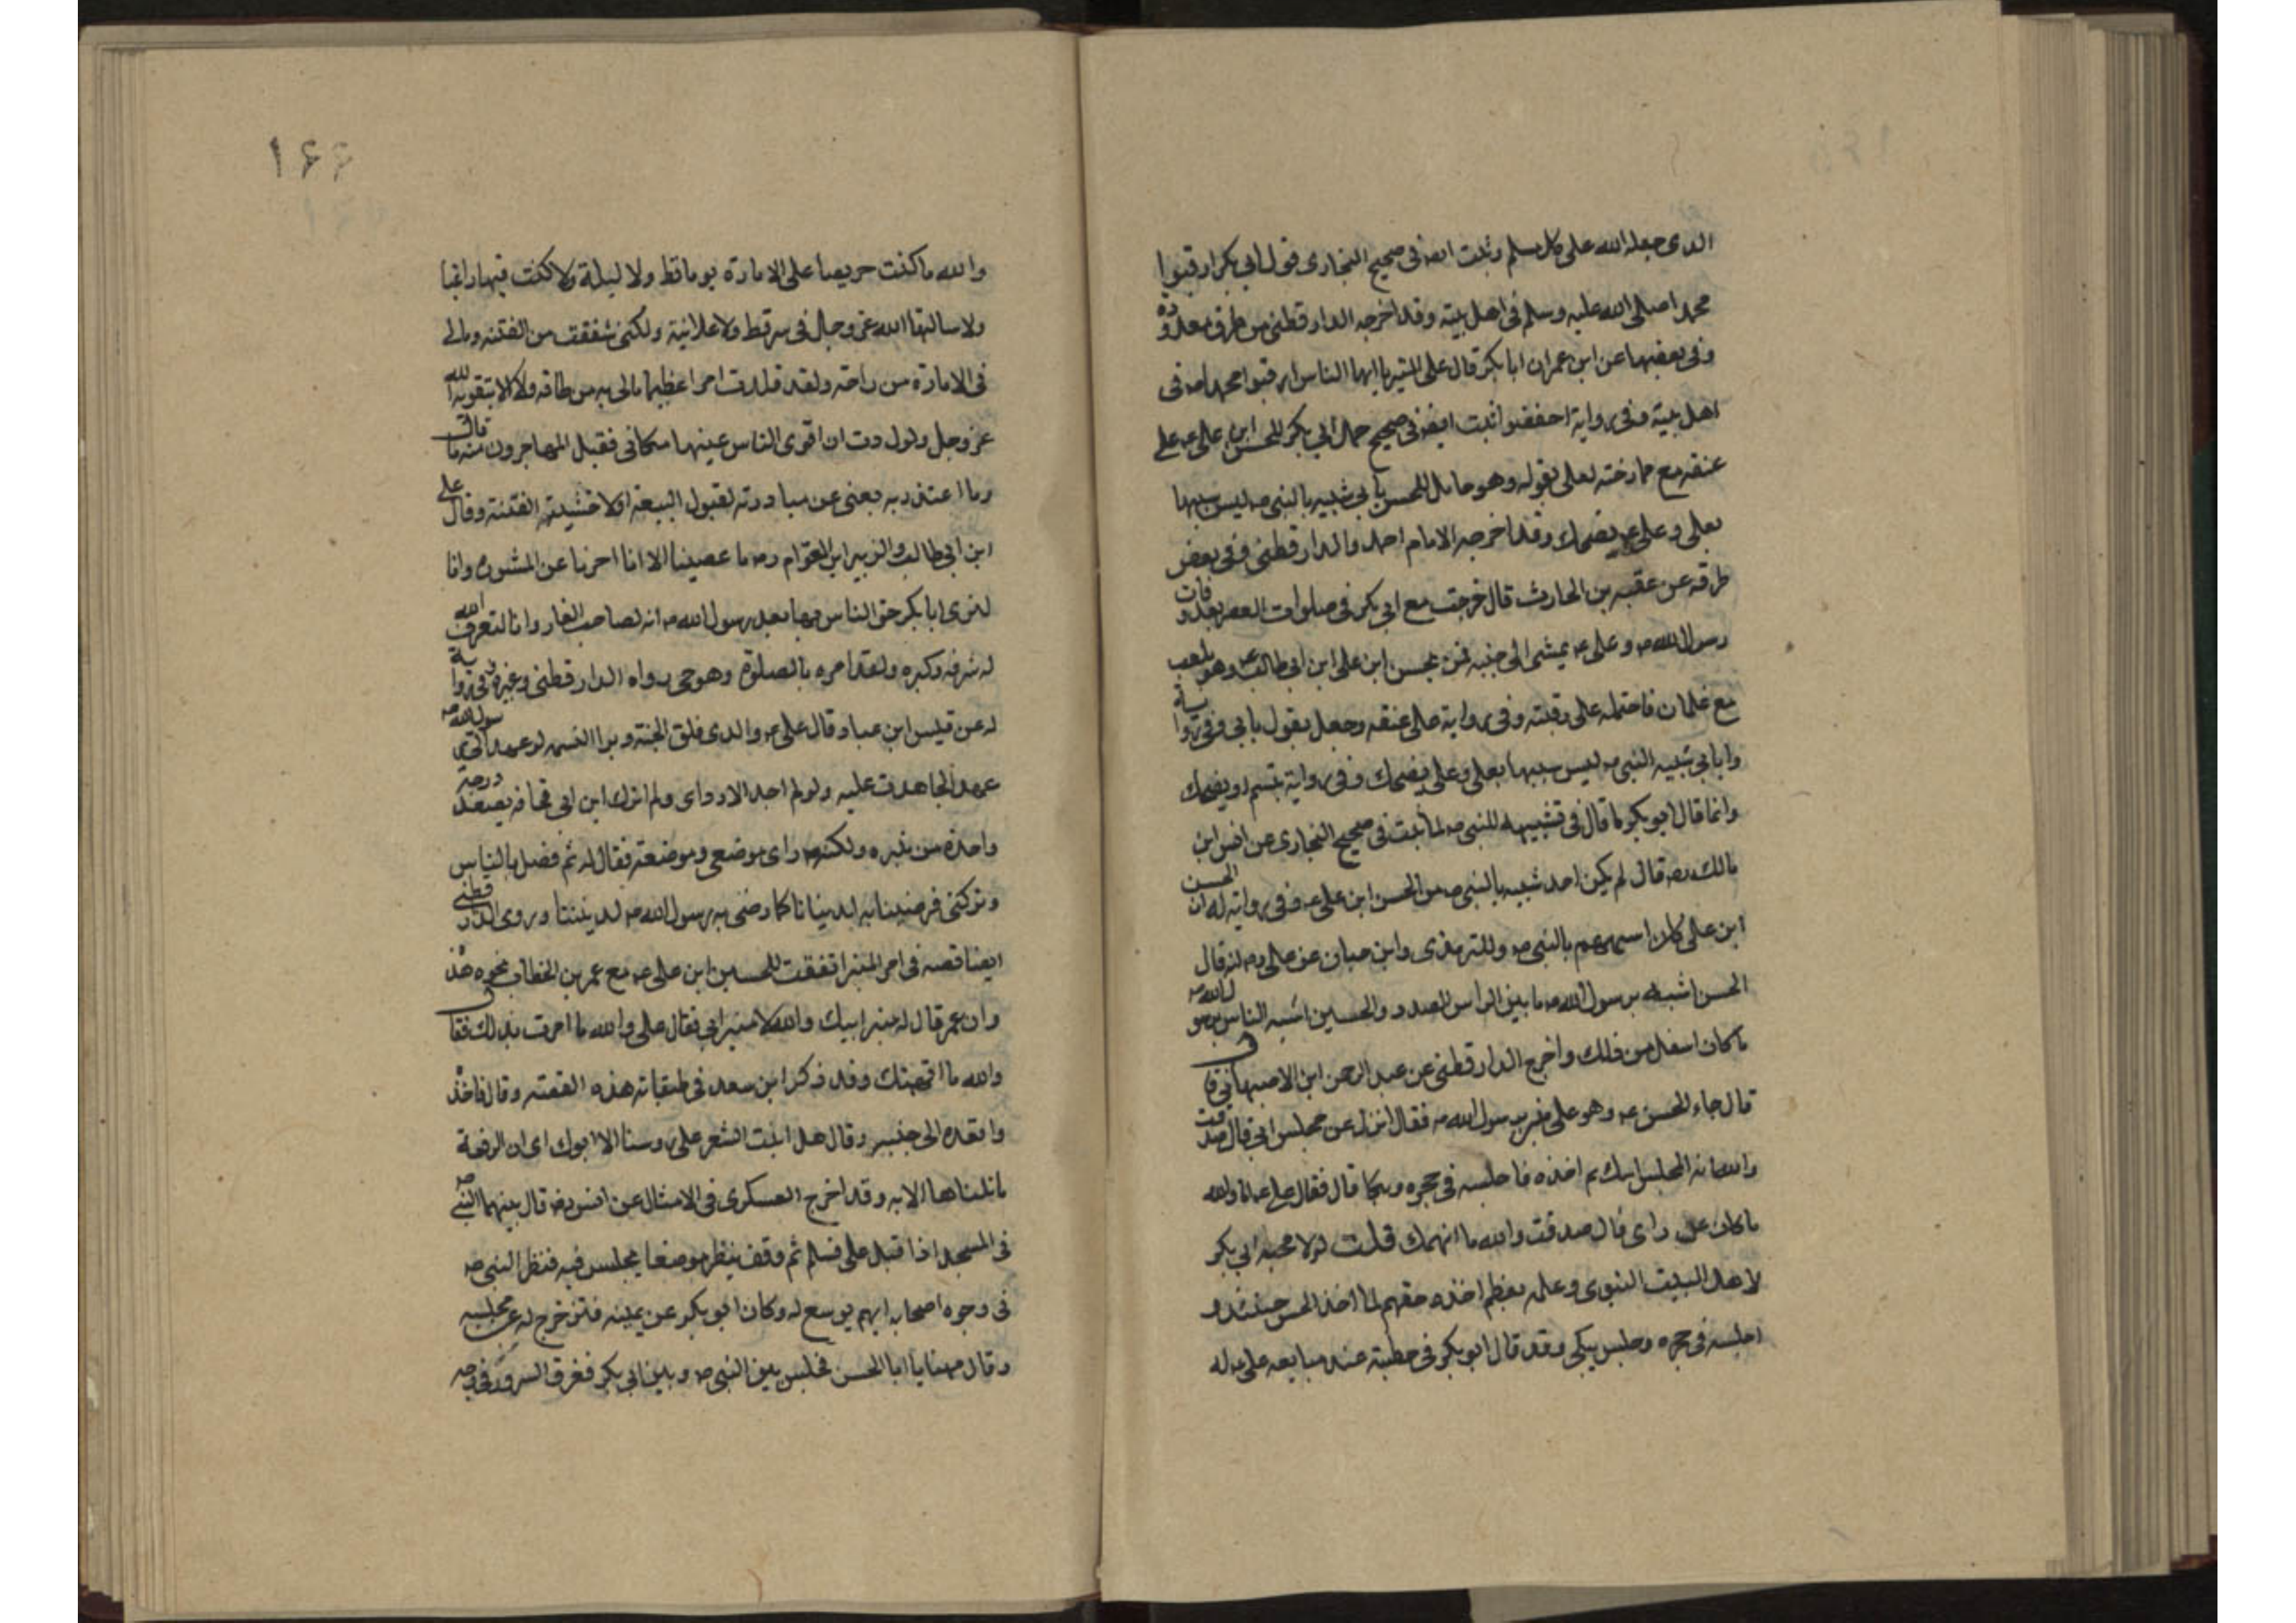 الذى جعله الله على كل مسلم وثبت ايضا فى صحيح البخارى قول ابى بكر ارقبوا
محمدا صلى الله عليه وسلم فى اهل بيته وقد اخرجه الدار قطنى من طرق معدودة
وفى بعضها عن ابن عمر ان ابا بكر قال على المنبر يا ايها الناس ارقبوا محمدا ص فى
اهل بيته وفى رواية احفظوا ثبت ايضا فى صحيح حمل ابى بكر للحسن ابن على ع على
عنقه مع ممازحته لعلى بقوله وهو حامل للحسن بابى شبيه بالنبى ص ليس شبيها
بعلى وعلى ع يضحك وقد اخرجه الامام احمد والدار قطنى وفى بعض
طرقه عن عقبه بن الحارث قال خرجت مع ابى بكر فى صلوات العصر بعد وفات
رسول الله ص وعلى ع يمشى الى جنبه فمر بحسن ابن على ابن ابى طالب ع وهو يلعب
مع غلمان فاحتمله على رقبته وفى رواية على عنقه وجعل يقول بابى وفى رواية
وا بابى شبيه النبى ص ليس شبيها بعلى وعلى يضحك وفى رواية تبسم او يضحك
وانما قال ابو بكر ما قال فى تشبيهه للنبى ص لما ثبت فى صحيح البخارى عن انس ابن
مالك رض قال لم يكن احد شبيه بالنبى ص من الحسن ابن على ع وفى رواية له ان الحسن
ابن على كان اشبههم بالنبى ص وللترمذى وابن حبان عن على رض انه قال
الحسن اشبه برسول الله ص ما بين الراس الصدر والحسين اشبه الناس برسول الله ص
ما كان اسفل من ذلك واخرج الدار قطنى عن عبد الرحمن ابن الاصبهانى قال
قال جاء الحسن ع وهو على منبر رسول الله ص فقال انزل عن مجلس ابى قال صدقت
والله انه المجلس ابيك ثم اخذه فاجلسه فى حجره وبكا قال فقال على ع اما والله
ما كان عن راى قال صدقت والله ما اتهمك قلت لولا محبه ابى بكر
لاهل البيت النبوى وعلمه بعظم اخذه حقهم لما اخذ الحسن حينئذ و
اجلسه فى حجره وجلس يبكى وقد قال ابو بكر فى خطبته عند مبايعه على ع له
١٦٦
والله ما كنت حريصا على الامارة يوما قط ولا ليلة ولا كنت فيها راغبا
ولا سالتها الله عز وجل فى سر قط ولا علانية ولكنى شفقت من الفتنه ومالى
فى الامارة من راحة ولقد قلدت امرا عظيما مالى به من طاقه ولا الا بتقوية الله
عز وجل ولوددت ان اقوى الناس عينها مكانى فقبل المهاجرون منه ما قال
وما اعتذر به يعنى عن مبادرته لقبول البيعة اولا خشية الفتنة وقال على
ابن ابى طالب والزبير ابن العوام رض ما عصينا الا انا اخرنا عن المشورة وانا
لنرى ابا بكر حق الناس بها بعد رسول الله ص انه لصاحب الغار وانا لنعرف الله
له شرفه وكبره ولقد امره بالصلوة وهو حى رواه الدار قطنى وغيره وفى رواية
له عن قيس ابن عباد قال على ع والذى فلق الحبة وبرا النسمه لو عهد الى رسول الله ص
عهدا لجاهدت عليه ولو لم اجد الا ردائى ولم اترك ابن ابى قحافه يصعد درجة
واحدة من منبره ولكنه راى موضعى وموضعه فقال له قم فصل بالناس
وتركنى فرضينا به لدنيانا كما رضى به رسول الله ص لديننا وروى الدار قطنى
ايضا قصه فى امر المنبر اتفقت للحسين ابن على ع مع عمر بن الخطاب نحو هذه
وان عمر قال له منبر ابيك والله لا منبر ابى فقال على والله ما امرت بذلك فقال
والله ما اتهمتك وقد ذكر ابن سعد فى طبقاته هذه القصه وقال فاخذه
واقعده الى جنبه وقال هل انبت الشعر على رؤسنا الا ابوك اى ان الرفعة
ما نلناها الا به وقد اخرج العسكرى فى الامثال عن انس رض قال بينهما النبى ص
فى المسجد اذ اقبل على فسلم ثم وقف ينظر موضعا يجلس فيه فنظر النبى ص
فى وجوه اصحابه ايهم يوسع له وكان ابو بكر عن يمينه فتزحزح له عن مجلسه
وقال ههنا يا ابا الحسن فجلس بين النبى ص وبين ابى بكر فعرف السرور فى وجه